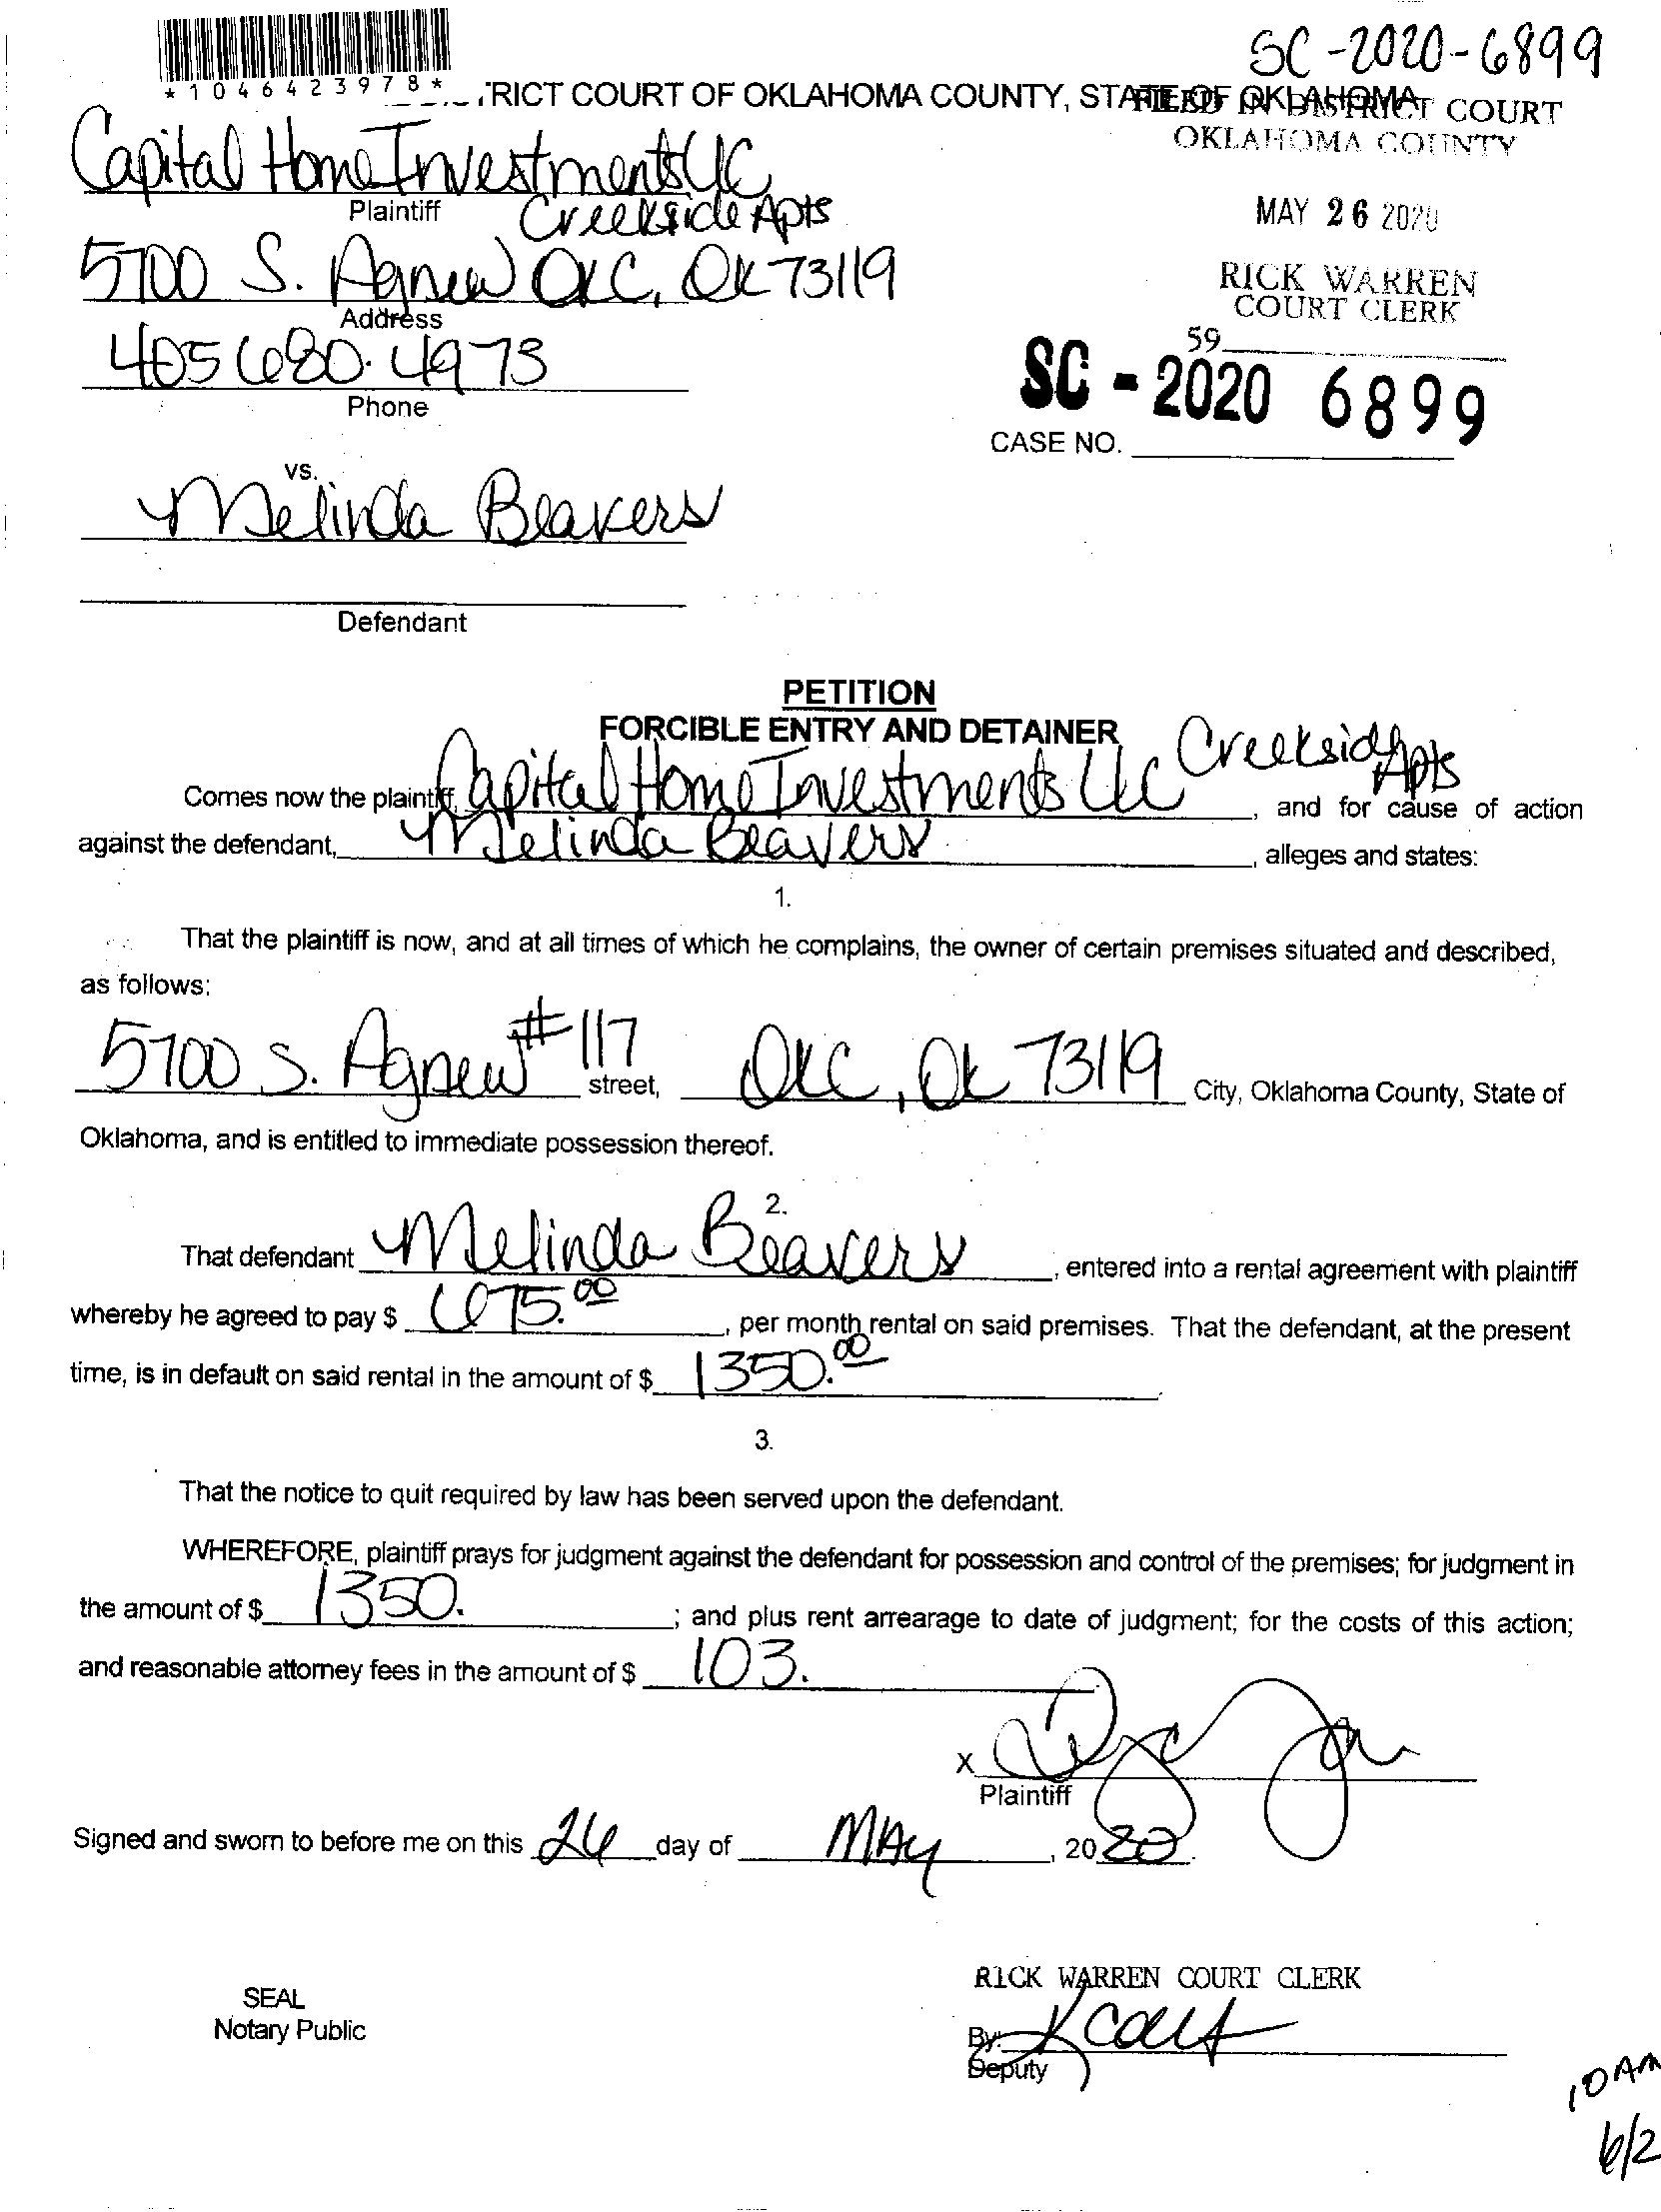 SC-2020-6899
*1046423978*
TRICT COURT OF OKLAHOMA COUNTY, STATE OF OKLAHOMA
FILED IN DISTRICT COURT
OKLAHOMA COUNTY
Capital Home Investments LLC
Plaintiff
Creekside Apts
MAY 26 2020
5700 S. Agnew OKC, OK 73119
Address
RICK WARREN
COURT CLERK
405 680.4973
Phone
59
SC - 2020 6899
CASE NO.
vs.
Melinda Beavers
Defendant
PETITION
FORCIBLE ENTRY AND DETAINER
Comes now the plaintiff, Capital Home Investments LLC Creekside Apts, and for cause of action
against the defendant, Melinda Beavers, alleges and states:
1.
That the plaintiff is now, and at all times of which he complains, the owner of certain premises situated and described,
as follows:
5700 S. Agnew #117 street, OKC, OK 73119 City, Oklahoma County, State of
Oklahoma, and is entitled to immediate possession thereof.
2.
That defendant Melinda Beavers, entered into a rental agreement with plaintiff
whereby he agreed to pay $ 675.00, per month rental on said premises. That the defendant, at the present
time, is in default on said rental in the amount of $ 1350.00.
3.
That the notice to quit required by law has been served upon the defendant.
WHEREFORE, plaintiff prays for judgment against the defendant for possession and control of the premises; for judgment in
the amount of $ 1350. ; and plus rent arrearage to date of judgment; for the costs of this action;
and reasonable attorney fees in the amount of $ 103.
X
Plaintiff
Signed and sworn to before me on this 26 day of MAY, 2020.
RICK WARREN COURT CLERK
SEAL
Notary Public
By:
Deputy
10AM
6/2